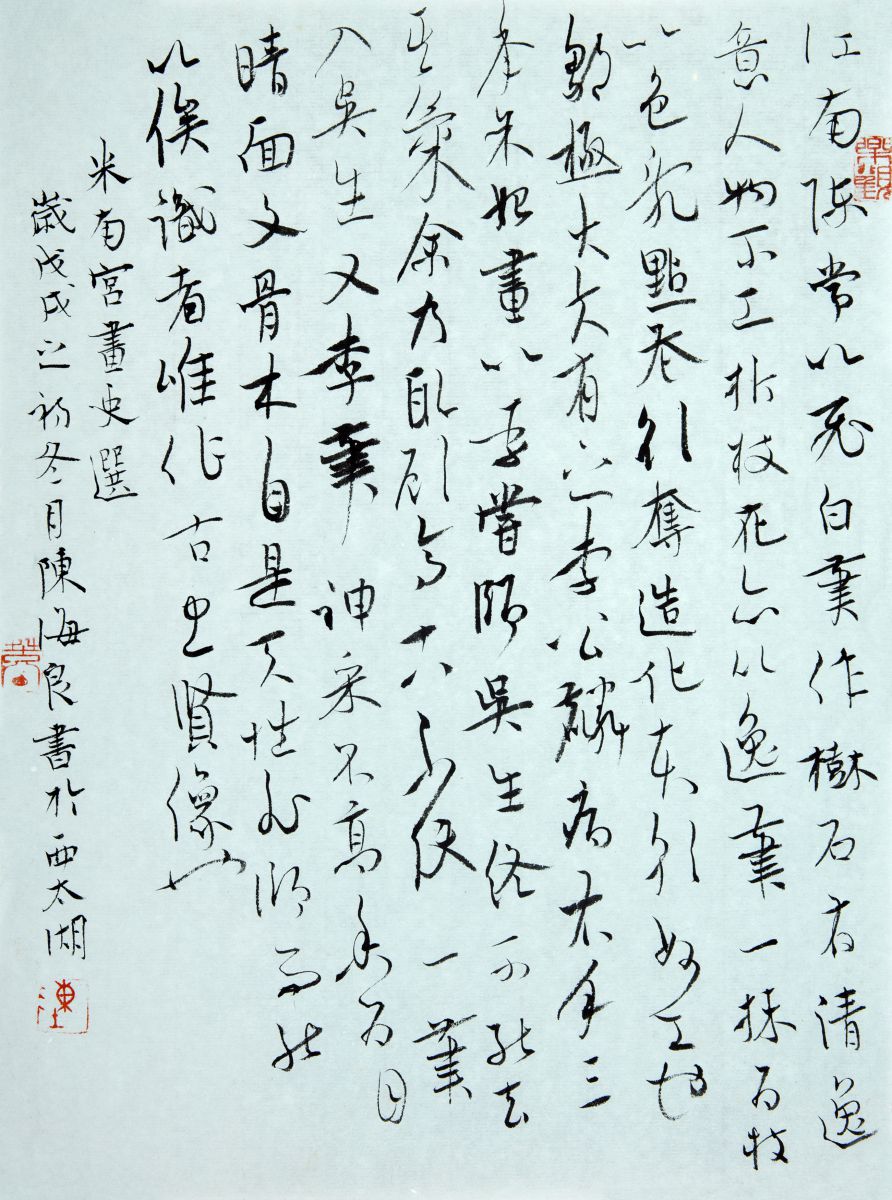 江南陳常以飛白筆作樹石有清逸
意人物不工折枝花亦以逸筆一抹為枝
以色亂點花欲奪造化本朝妙工也
極大夫有之李公麟病右手三
年余始畫以李嘗師吳生終不能去
其氣余乃取顧高古不使一筆
入吳生又李筆神采不高余為目
睛面文骨木自是天性非師而能
以俟識者唯作古忠賢像也
米南宮畫史選
歲戊戌之初冬月陳海良書於西太湖
樂觀